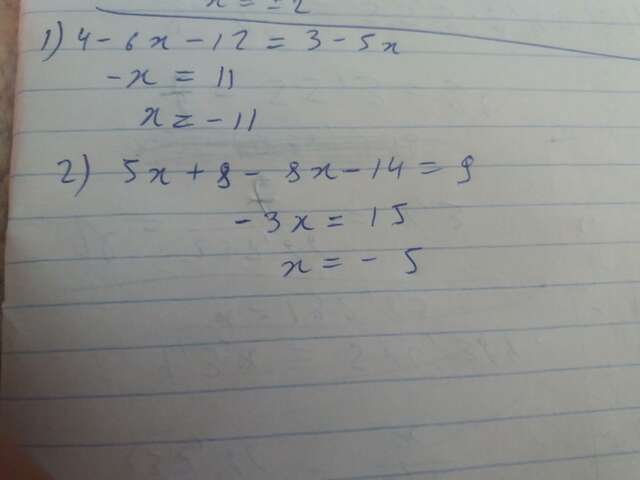 x = ±2
1) 4 - 6x - 12 = 3 - 5x
-x = 11
x = -11
2) 5x + 8 - 8x - 14 = 9
-3x = 15
x = - 5